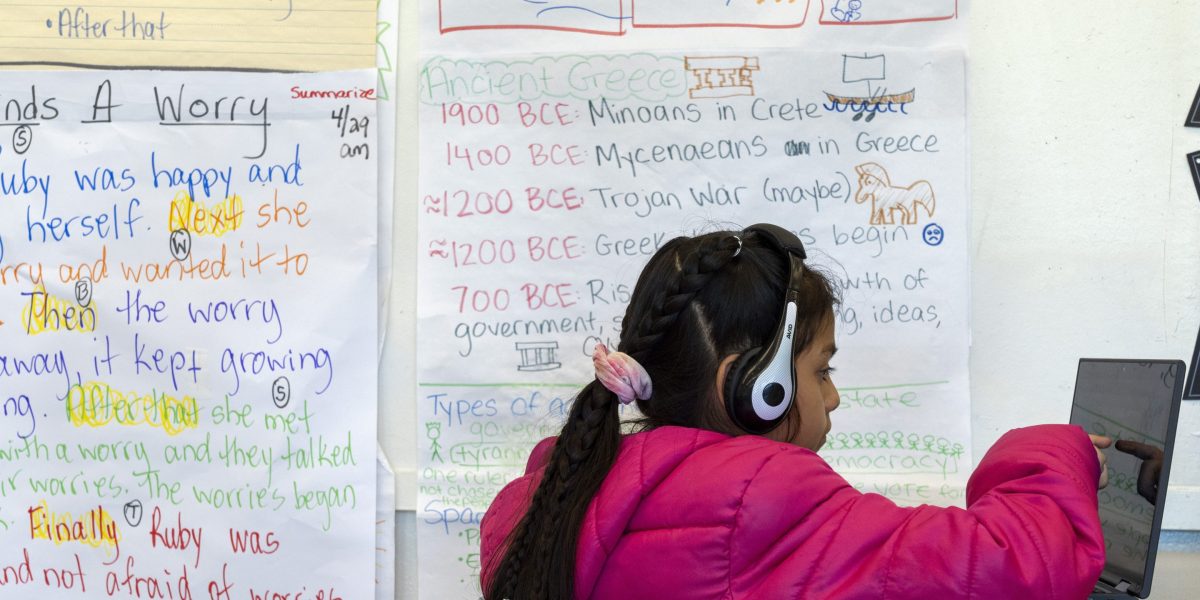 • After that
nds A Worry
Summarize
4/29
am
S
uby was happy and
herself. Next she
W
rry and wanted it to
B
Then the worry
away, it kept growing
S
ng. After that she met
with a worry and they talked
ir worries. The worries began
T
Finally Ruby was
nd not afraid of worries
Ancient Greece
1900 BCE: Minoans in Crete
1400 BCE: Mycenaeans in Greece
≈1200 BCE: Trojan War (maybe)
≈1200 BCE: Greek s begin
700 BCE: Ris wth of
government, s g, ideas,
Types of state
government
tyran emocracy
one ruler
not chose VOTE for
Spa
AVID